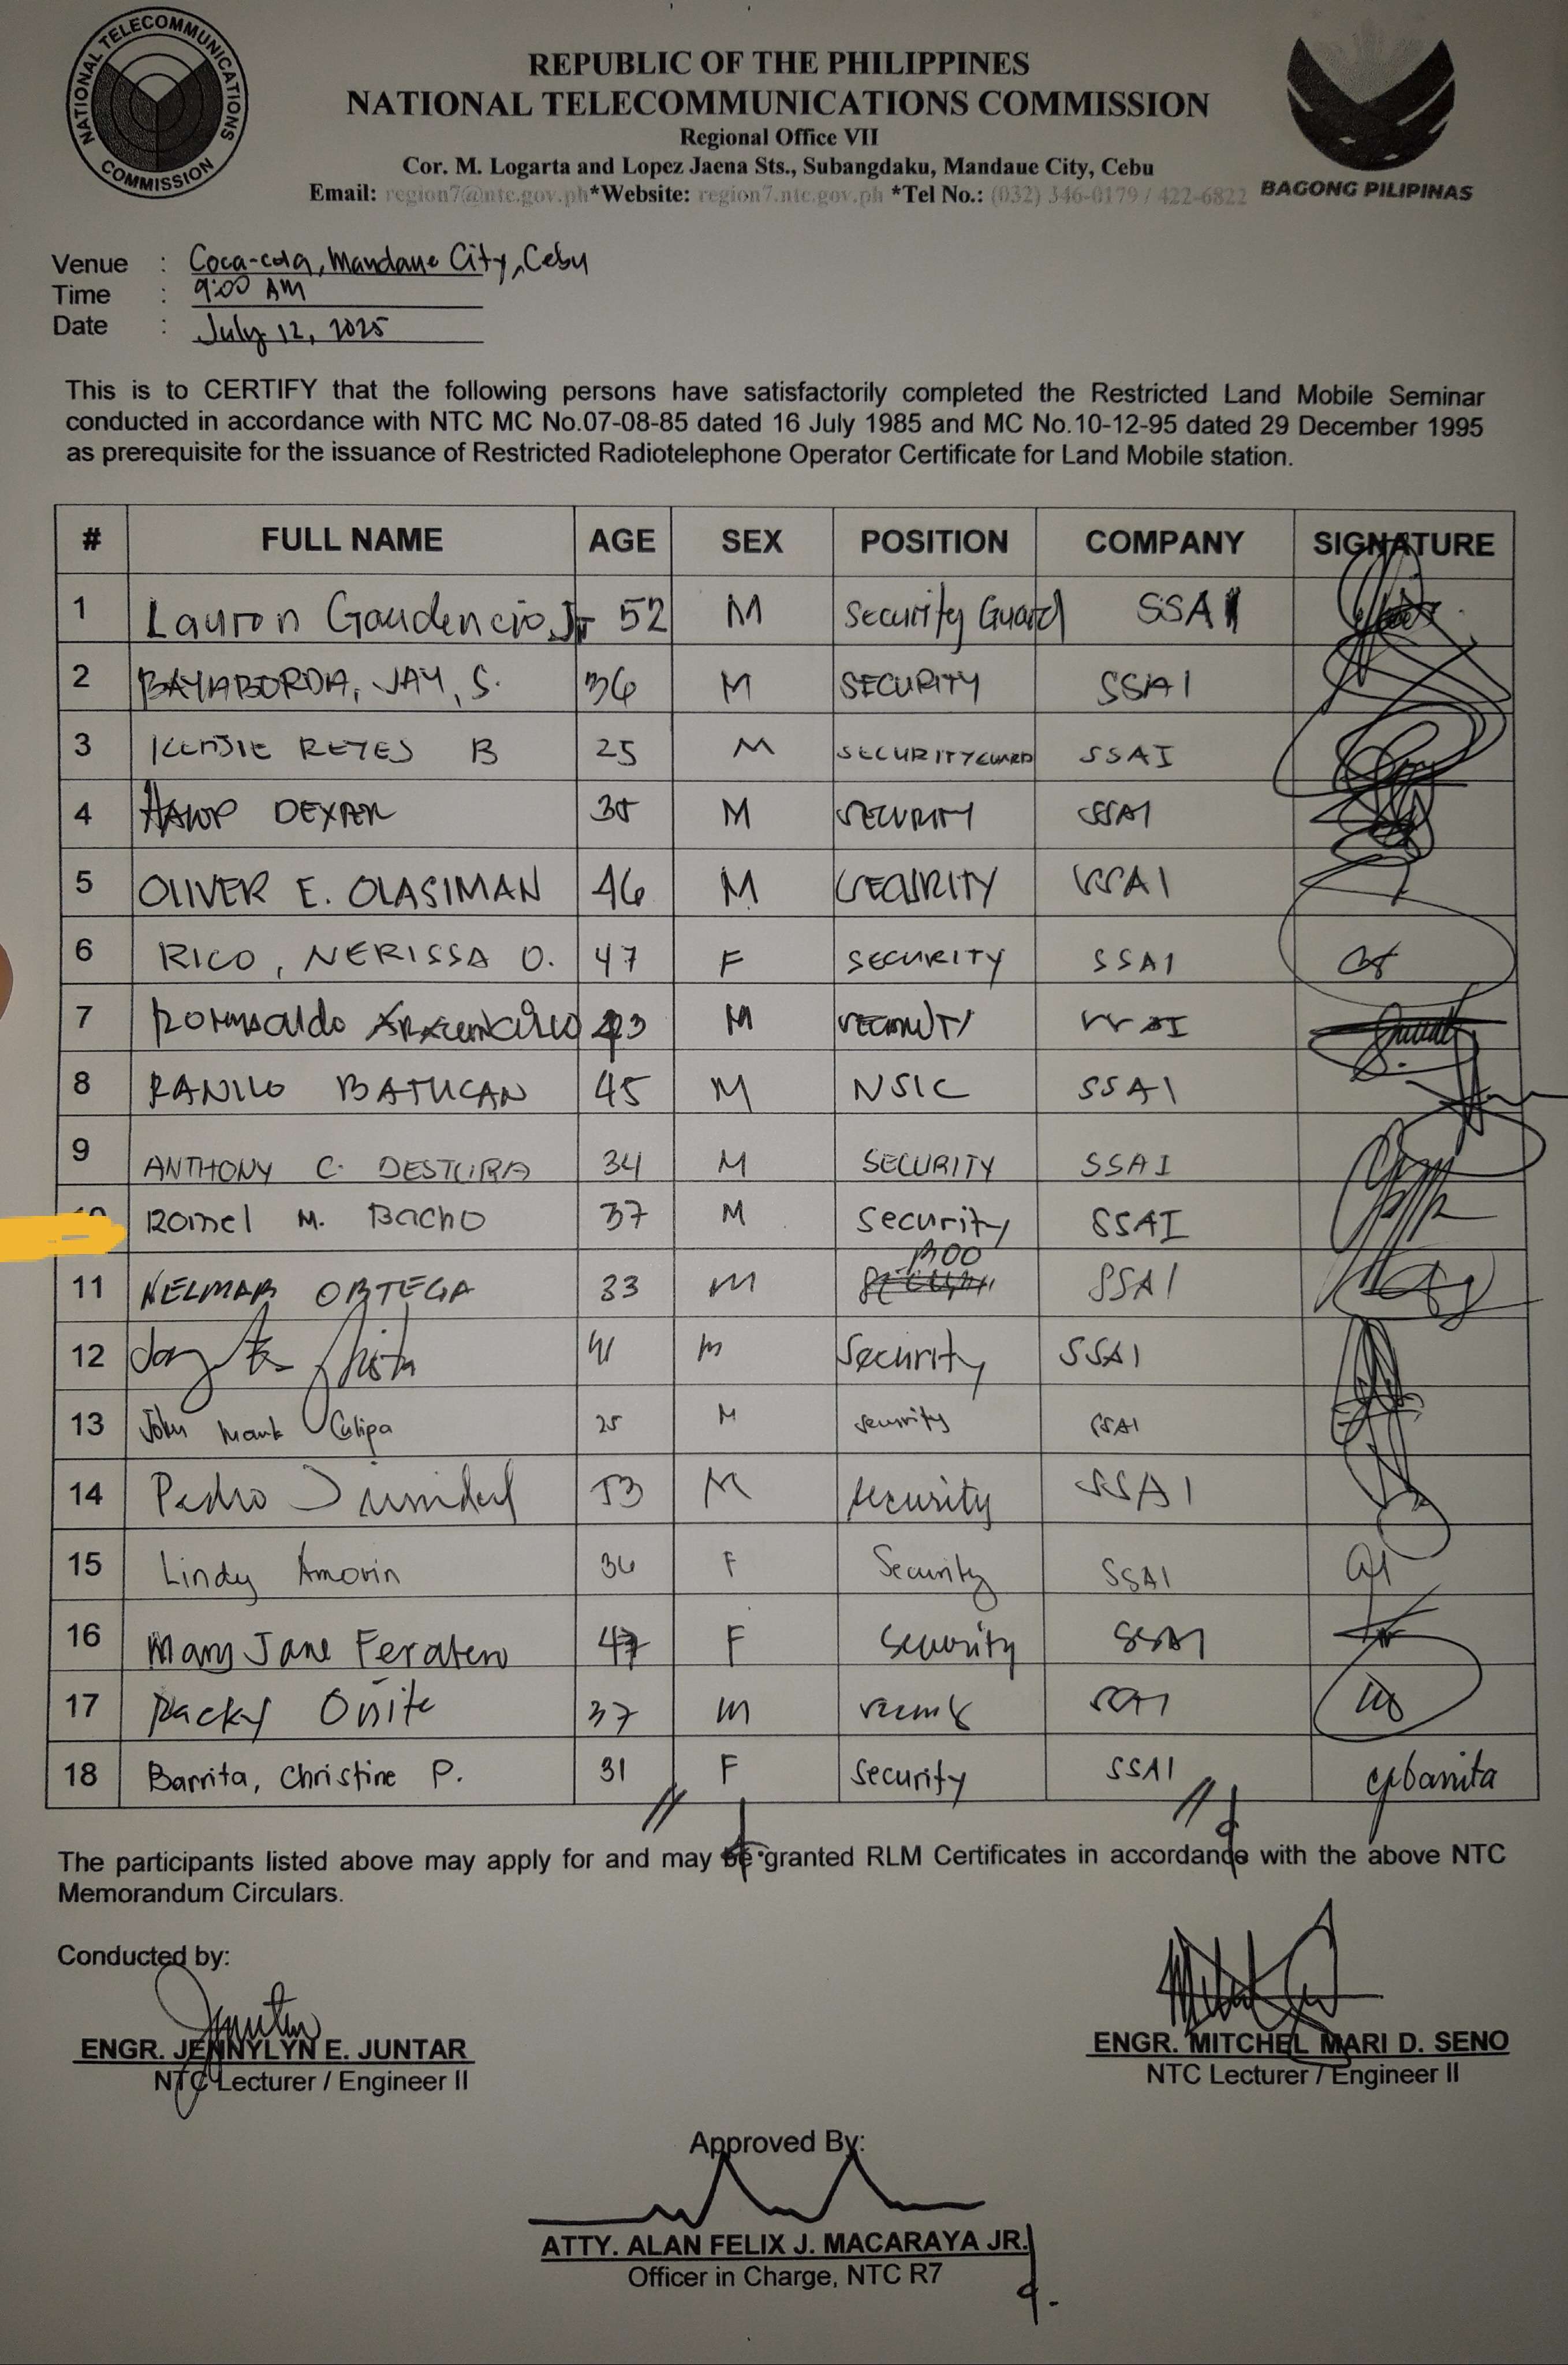 NATIONAL TELECOMMUNICATIONS COMMISSION
REPUBLIC OF THE PHILIPPINES
NATIONAL TELECOMMUNICATIONS COMMISSION
Regional Office VII
Cor. M. Logarta and Lopez Jaena Sts., Subangdaku, Mandaue City, Cebu
Email: region7@ntc.gov.ph*Website: region7.ntc.gov.ph *Tel No.: (032) 346-0179 / 422-6822
BAGONG PILIPINAS
Venue : Coca-cola, Mandaue City, Cebu
Time : 9:00 AM
Date : July 12, 2025
This is to CERTIFY that the following persons have satisfactorily completed the Restricted Land Mobile Seminar
conducted in accordance with NTC MC No.07-08-85 dated 16 July 1985 and MC No.10-12-95 dated 29 December 1995
as prerequisite for the issuance of Restricted Radiotelephone Operator Certificate for Land Mobile station.
# FULL NAME AGE SEX POSITION COMPANY SIGNATURE
1 Lauron Gaudencio Jr 52 M Security Guard SSAI
2 BAYABORDA, JAY, S. 36 M SECURITY SSAI
3 KENJIE REYES B 25 M SECURITY GUARD SSAI
4 M SECURITY SSAI
5 OLIVER E. OLASIMAN 46 M SECURITY SSAI
6 RICO, NERISSA O. 47 F SECURITY SSAI
7 Romualdo M SECURITY SSAI
8 RANILO BATUCAN 45 M NSIC SSAI
9 ANTHONY C. DESTURA 34 M SECURITY SSAI
10 Romel M. Bacho 37 M Security SSAI
11 NELMAR ORTEGA 33 M SSAI
12 41 M Security SSAI
13 John Mark Culipa 25 M Security SSAI
14 Pedro 53 M Security SSAI
15 Lindy Amorin F Security SSAI
16 Mary Jane 47 F Security SSAI
17 Packy Oñite 37 M SSAI
18 Barrita, Christine P. 31 F Security SSAI cpbarrita
The participants listed above may apply for and may be granted RLM Certificates in accordance with the above NTC
Memorandum Circulars.
Conducted by:
ENGR. JENNYLYN E. JUNTAR
NTC Lecturer / Engineer II
ENGR. MITCHEL MARI D. SENO
NTC Lecturer / Engineer II
Approved By:
ATTY. ALAN FELIX J. MACARAYA JR.
Officer in Charge, NTC R7